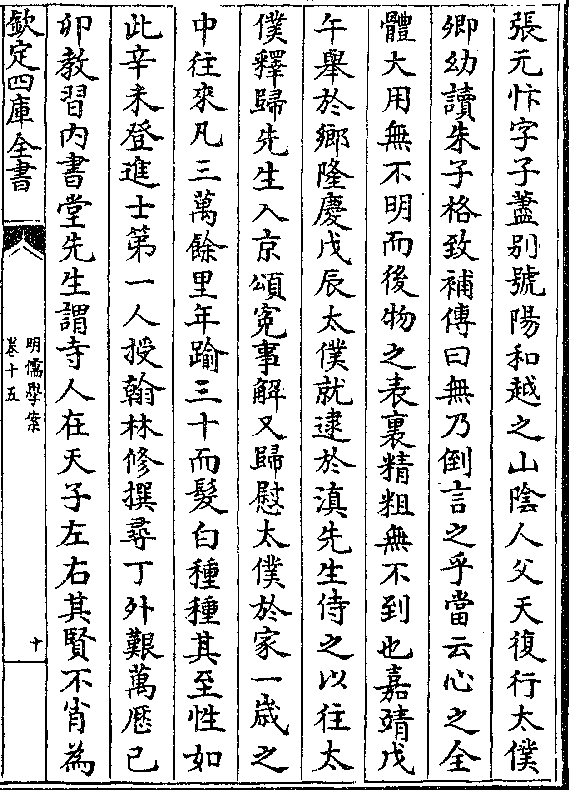 張元忭字子藎别號陽和越之山陰人父天復行太僕
卿幼讀朱子格致補傳曰無乃倒言之乎當云心之全
體大用無不明而後物之表裏精粗無不到也嘉靖戊
午舉於鄉隆慶戊辰太僕就逮於滇先生侍之以往太
僕釋歸先生入京頌寃事解又歸慰太僕於家一歳之
中往來凡三萬餘里年踰三十而髮白種種其至性如
此辛未登進士第一人授翰林修撰尋丁外艱萬厯已
卯教習内書堂先生謂寺人在天子左右其賢不肖為
欽定四庫全書
明儒學案
卷十五
十